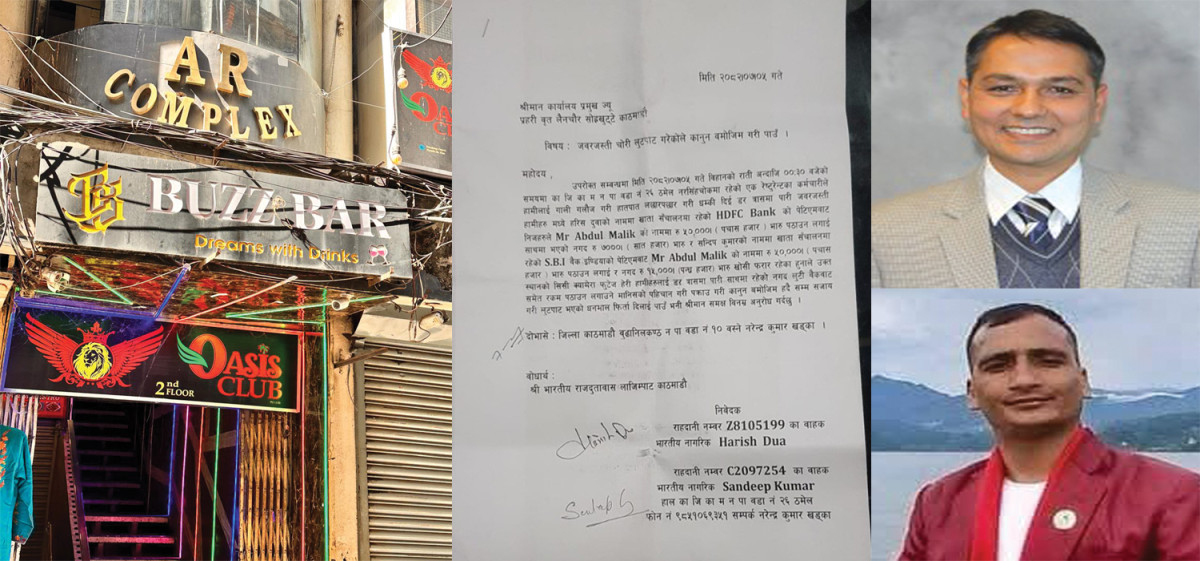 AR
COMPLEX
BUZZ BAR
Dreams with Drinks
OASIS
CLUB
2nd
FLOOR
मिति २०८२।०७।०५ गते
श्रीमान कार्यालय प्रमुख ज्यू
प्रहरी वृत लैनचौर सोह्रखुट्टे काठमाडौं
विषय : जवरजस्ती चोरी लुटपाट गरेकोले कानुन वमोजिम गरी पाउँ ।
महोदय ,
उपरोक्त सम्वन्धमा मिति २०८२।०७।०५ गते विहानको राती अन्दाजि ००:३० वजेको
समयमा का जि का म न पा वडा नं २६ ठमेल नरसिंहचोकमा रहेको एक रेष्टुरेन्टका कर्मचारीले
हामीलाई गाली गलौज गरी हातपात लछारपछार गरी धम्की दिई डर त्रासमा पारी जवरजस्ती
हामीहरु मध्ये हरिस दुवाको नाममा खाता संचालनमा रहेको HDFC Bank को पेटिएमवाट
निजहरुले Mr Abdul Malik को नाममा रु ५०,०००। (पचास हजार) भारु पठाउन लगाई
साथमा भएको नगद रु ७०००। (सात हजार) भारु र सन्दिप कुमारको नाममा खाता संचालनमा
रहेको S.B.I बैंक इण्डियाको पेटिएमबाट Mr Abdul Malik को नाममा रु ५०,०००। (पचास
हजार) भारु पठाउन लगाई र नगद रु १५,०००। (पन्ध्र हजार) भारु खोसी फरार रहेका हुनाले उक्त
स्थानको सिसी क्यामेरा फुटेज हेरी हामीहरुलाई डर त्रासमा पारी साथमा रहेको नगद लुटी बैंकबाट
समेत रकम पठाउन लगाउने मानिसको पहिचान गरी पक्राउ गरी कानुन वमोजिम हदै सम्म सजाय
गरी लुटपाट भएको धनमाल फिर्ता दिलाई पाउँ भनी श्रीमान समक्ष विनम्र अनुरोध गर्दछु ।
दोभासे : जिल्ला काठमाडौं बुढानिलकण्ठ न पा वडा नं १० वस्ने नरेन्द्र कुमार खड्का ।
वोधार्थ :
श्री भारतीय राजदुतावास लाजिम्पाट काठमाडौं
निवेदक
राहदानी नम्वर Z8105199 का वाहक
भारतीय नागरिक Harish Dua
राहदानी नम्वर C2097254 का वाहक
भारतीय नागरिक Sandeep Kumar
हाल का जि का म न पा वडा नं २६ ठमेल
फोन नं ९८५१०६९३५१ सम्पर्क नरेन्द्र कुमार खड्का